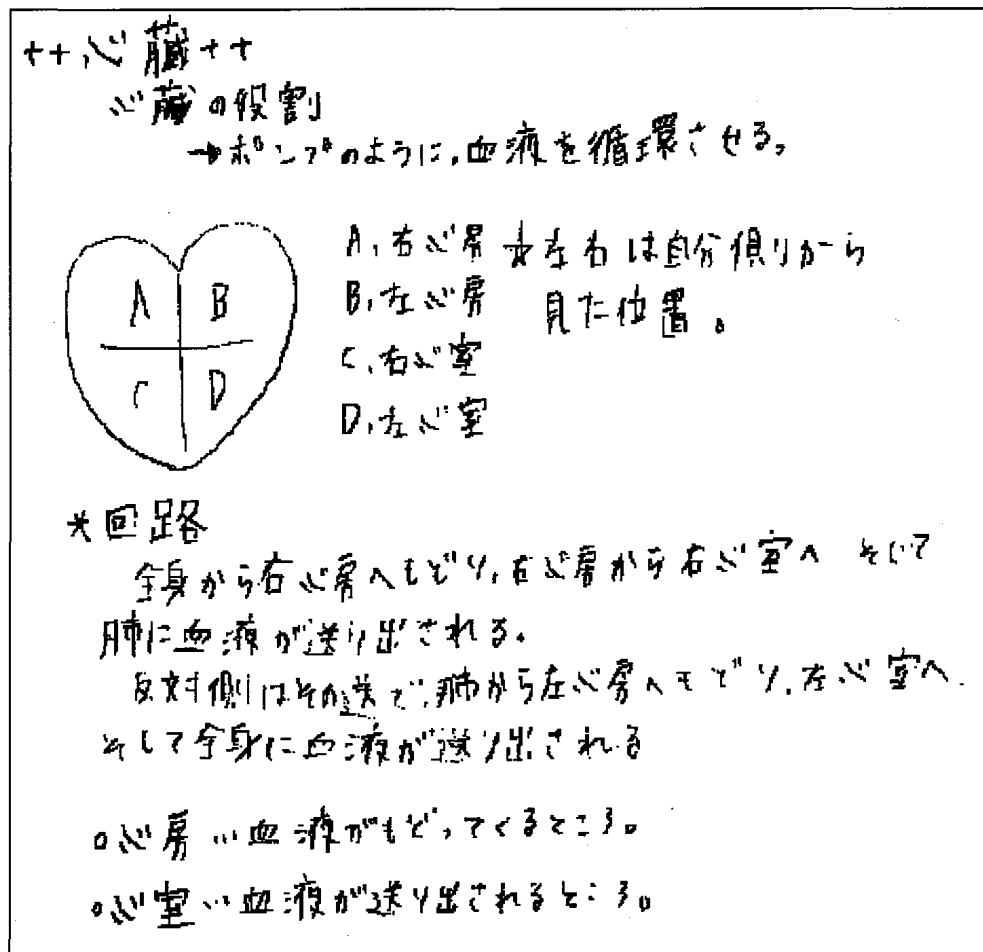 ++心臓++
心臓の役割
→ポンプのように、血液を循環させる。
A、右心房 ☆左右は自分側りから
B、左心房 見た位置。
C、右心室
D、左心室
A B
C D
*回路
全身から右心房へもどり、右心房から右心室へ そして
肺に血液が送り出される。
反対側はその逆で、肺から左心房へもどり、左心室へ
そして全身に血液が送り出される
○心房…血液がもどってくるところ。
○心室…血液が送り出されるところ。